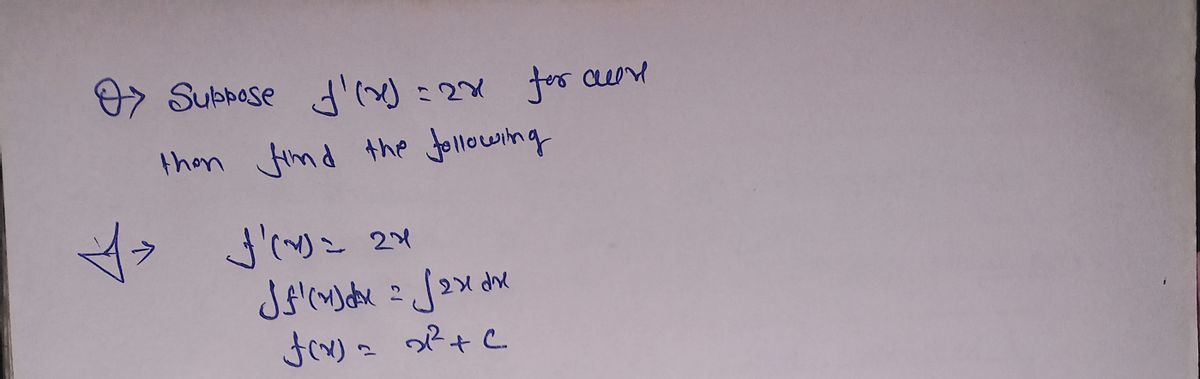 Q→ Suppose f'(x) = 2x for all x
then find the following
A→ f'(x) = 2x
∫f'(x)dx = ∫2x dx
f(x) = x² + C